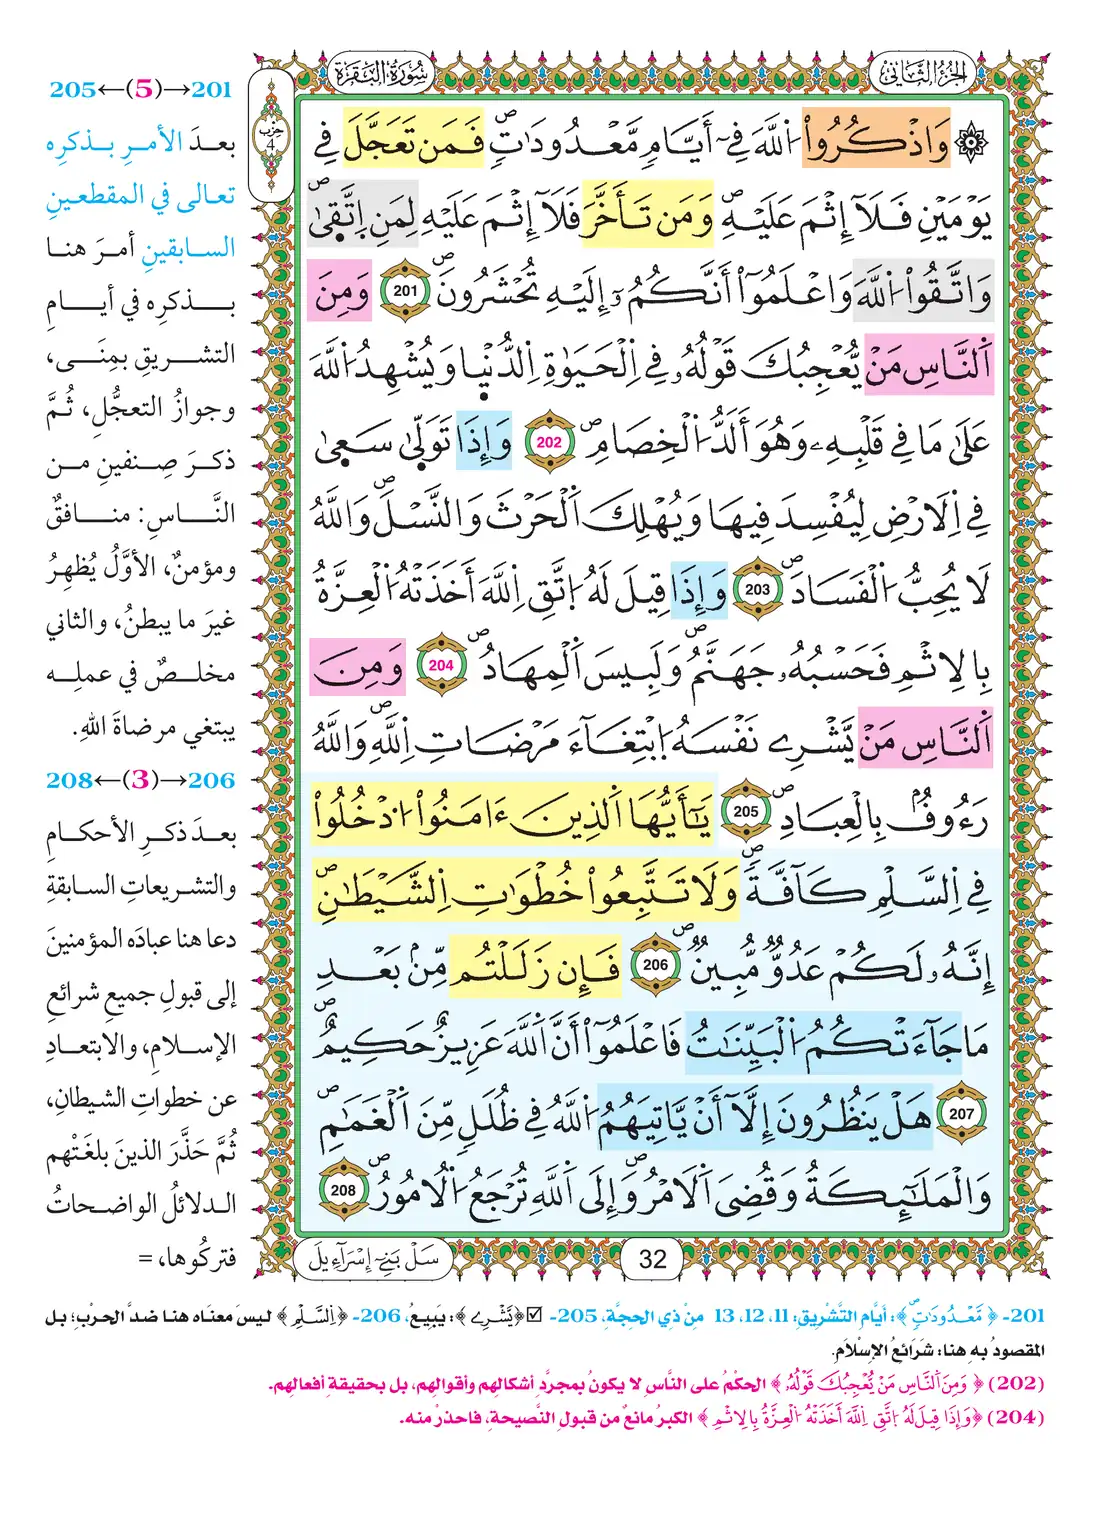 سُورَةُ الْبَقَرَةِ
الجزء الثاني
حزب
4
۞ وَاذْكُرُواْ اللَّهَ فِےٓ أَيَّامٖ مَّعْدُودَٰتٖۖ فَمَن تَعَجَّلَ فِے
يَوْمَيْنِ فَلَآ إِثْمَ عَلَيْهِۖ وَمَن تَأَخَّرَ فَلَآ إِثْمَ عَلَيْهِ لِمَنِ اِتَّقٜيٰۖ
وَاتَّقُواْ اُللَّهَ وَاعْلَمُوٓاْ أَنَّكُمُۥٓ إِلَيْهِ تُحْشَرُونَۖ 201 وَمِنَ
اَلنَّاسِ مَنْ يُّعْجِبُكَ قَوْلُهُۥ فِے اِلْحَيَوٰةِ اِلدُّنْيٜا وَيُشْهِدُ اُللَّهَ
عَلَيٰ مَا فِے قَلْبِهِۦ وَهُوَ أَلَدُّ اُلْخِصَامِۖ 202 وَإِذَا تَوَلّٜيٰ سَعٜيٰ
فِے اِلَارْضِ لِيُفْسِدَ فِيهَا وَيُهْلِكَ اَلْحَرْثَ وَالنَّسْلَۖ وَاللَّهُ
لَا يُحِبُّ اُلْفَسَادَۖ 203 وَإِذَا قِيلَ لَهُ اُتَّقِ اِللَّهَ أَخَذَتْهُ اُلْعِزَّةُ
بِالِاثْمِ فَحَسْبُهُۥ جَهَنَّمُۖ وَلَبِيسَ اَلْمِهَادُۖ 204 وَمِنَ
اَلنَّاسِ مَنْ يَّشْرِے نَفْسَهُ اُبْتِغَآءَ مَرْضَاتِ اِللَّهِۖ وَاللَّهُ
رَءُوفُۢ بِالْعِبَادِۖ 205 يَٰٓأَيُّهَا اَلذِينَ ءَامَنُواْ اُدْخُلُواْ
فِے اِلسَّلْمِ كَآفَّةٗۖ وَلَا تَتَّبِعُواْ خُطْوَٰتِ اِلشَّيْطَٰنِۖ
إِنَّهُۥ لَكُمْ عَدُوّٞ مُّبِينٞۖ 206 فَإِن زَلَلْتُم مِّنۢ بَعْدِ
مَا جَآءَتْكُمُ اُلْبَيِّنَٰتُ فَاعْلَمُوٓاْ أَنَّ اَللَّهَ عَزِيزٌ حَكِيمٌۖ
207 هَلْ يَنظُرُونَ إِلَّآ أَنْ يَّاتِيَهُمُ اُللَّهُ فِے ظُلَلٖ مِّنَ اَلْغَمَٰمِ
وَالْمَلَٰٓئِكَةُ وَقُضِيَ اَلَامْرُۖ وَإِلَى اَللَّهِ تُرْجَعُ اُلُامُورُۖ 208
32
سَلْ بَنِےٓ إِسْرَآءِيلَ
201→(5)←205
بعدَ الأمرِ بذكرِه
تعالى في المقطعينِ
السابقينِ أمرَ هنا
بذكرِه في أيامِ
التشريقِ بمِنَى،
وجوازُ التعجُّلِ، ثُمَّ
ذكرَ صِنفينِ من
النَّاسِ: منافقٌ
ومؤمنٌ، الأوَّلُ يُظهِرُ
غيرَ ما يبطنُ، والثاني
مخلصٌ في عملِه
يبتغي مرضاةَ اللهِ.
206→(3)←208
بعدَ ذكرِ الأحكامِ
والتشريعاتِ السابقةِ
دعا هنا عبادَه المؤمنينَ
إلى قبولِ جميعِ شرائعِ
الإسلامِ، والابتعادِ
عن خطواتِ الشيطانِ،
ثُمَّ حَذَّرَ الذينَ بلغَتْهم
الدلائلُ الواضحاتُ
فتركُوها، =
201- ﴿مَّعْدُودَٰتٖۖ﴾: أيَّام التَّشْرِيقِ: 11، 12، 13 مِنْ ذي الحِجَّةِ، 205- ☑﴿يَّشْرِے﴾: يَبِيعُ، 206- ﴿اِلسَّلْمِ﴾ ليسَ معنَاه هنا ضدَّ الحرْبِ؛ بل
المقصودُ بهِ هنا: شَرَائعُ الإسْلَامِ.
(202) ﴿وَمِنَ اَلنَّاسِ مَنْ يُّعْجِبُكَ قَوْلُهُۥ﴾ الحكْمُ على النَّاسِ لا يكونُ بمجرَّدِ أشكالِهم وأقوالِهم، بل بحقيقةِ أفعالِهم.
(204) ﴿وَإِذَا قِيلَ لَهُ اُتَّقِ اِللَّهَ أَخَذَتْهُ اُلْعِزَّةُ بِالِاثْمِ﴾ الكبرُ مانعٌ من قبولِ النَّصيحةِ، فاحذرْ منه.